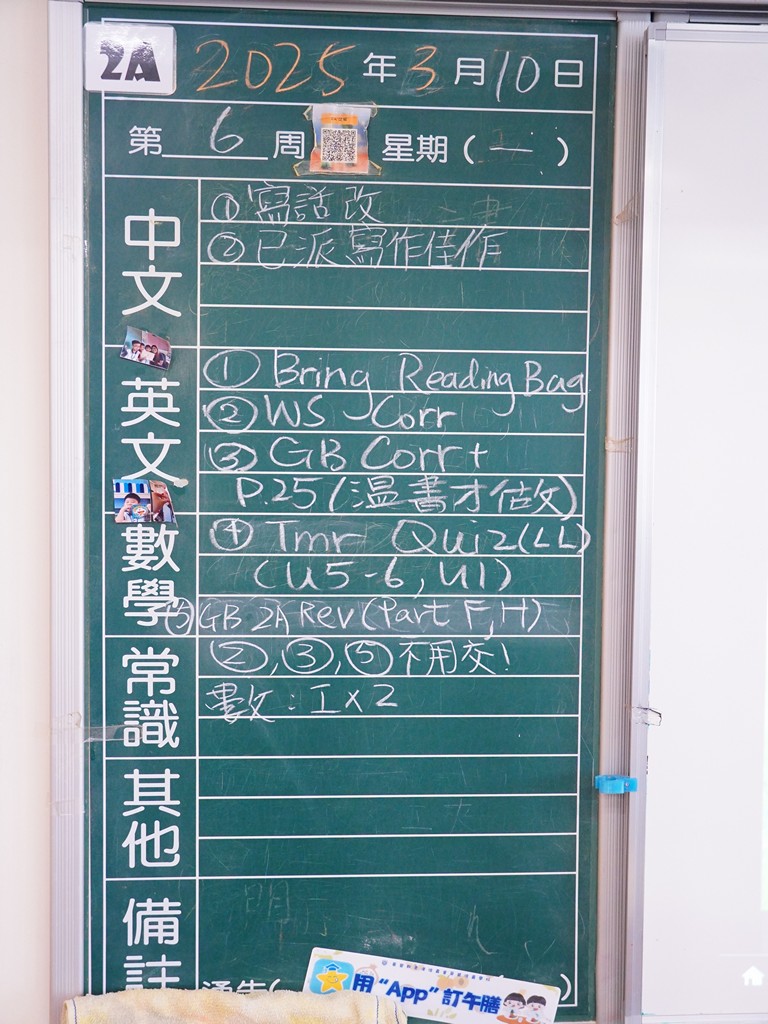 2A 2025年3月10日
第6周 星期(一)
中文
① 寫話改
② 已派寫作佳作
英文
① Bring Reading Bag
② WS Corr
③ GB Corr +
P.25(温書才做)
④ Tmr Quiz(LL)
(U5-6, U1)
數學
⑤ GB 2A Rev(Part F, H)
②,③,⑤不用交!
常識
數:工x2
其他
備註
通告(
)
用“App”訂午膳